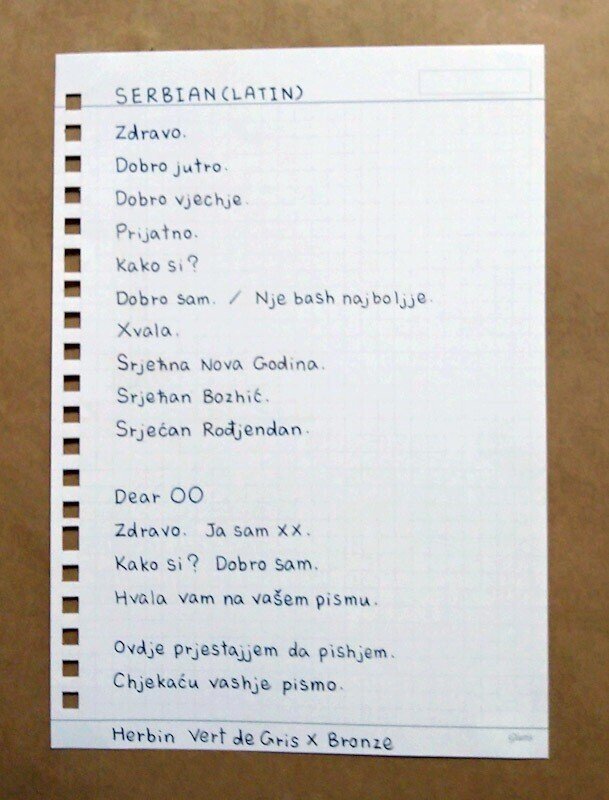 SERBIAN(LATIN)
Zdravo.
Dobro jutro.
Dobro vjechje.
Prijatno.
Kako si?
Dobro sam. / Nje bash najboljje.
Xvala.
Srjećna Nova Godina.
Srjećan Bozhić.
Srjećan Rođjendan.
Dear OO
Zdravo. Ja sam XX.
Kako si? Dobro sam.
Hvala vam na vašem pismu.
Ovdje prjestajjem da pishjem.
Chjekaću vashje pismo.
Herbin Vert de Gris X Bronze